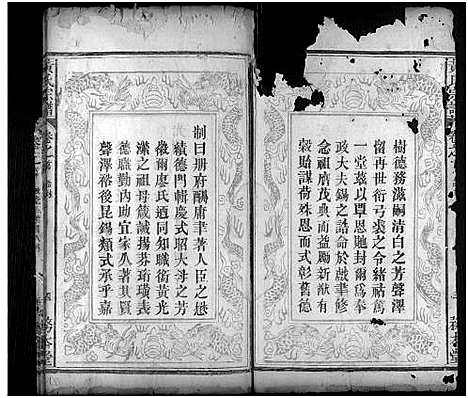 樹德務滋嗣清白之芳聲澤
留再世衍弓裘之令緒祜篤
一堂玆以覃恩貤封爾爲奉
政大夫錫之誥命於戲聿修
念祖膺茂典而益勵新猷有
穀貽謀荷殊恩而式彰舊德
制曰册府酬庸聿著人臣之懋
績德門輯慶式昭大母之芳
徽爾廖氏迺同知職銜黃光
㵆之祖母箴誡揚芬珩璜表
德職勤內助宜家久著其賢
聲澤裕後昆錫類式承乎嘉